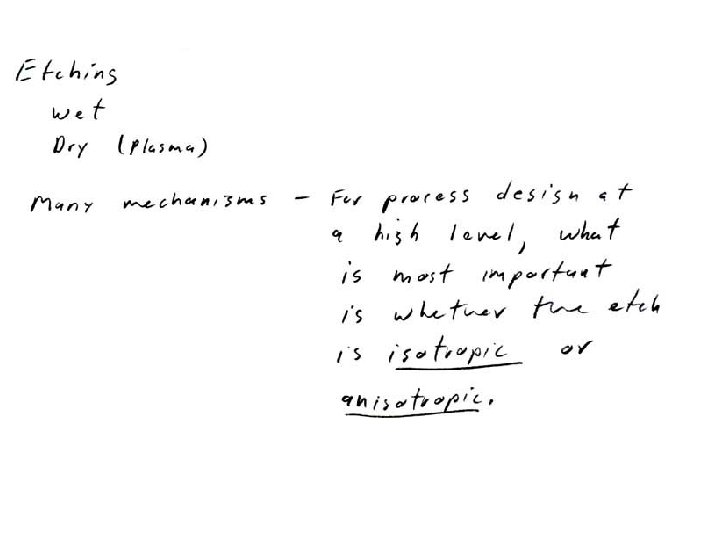 Etching
Wet
Dry (Plasma)
Many mechanisms - For process design at
a high level, what
is most important
is whether the etch
is isotropic or
anisotropic.